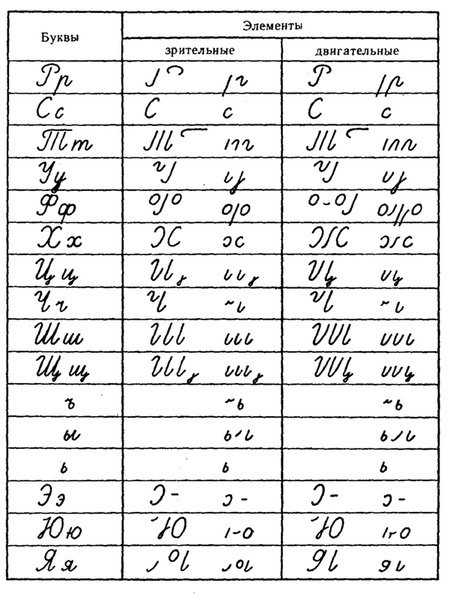 Буквы
Элементы
зрительные двигательные
Рр
Сс
Тт
Уу
Фф
Хх
Цц
Чч
Шш
Щщ
ъ
ы
ь
Ээ
Юю
Яя